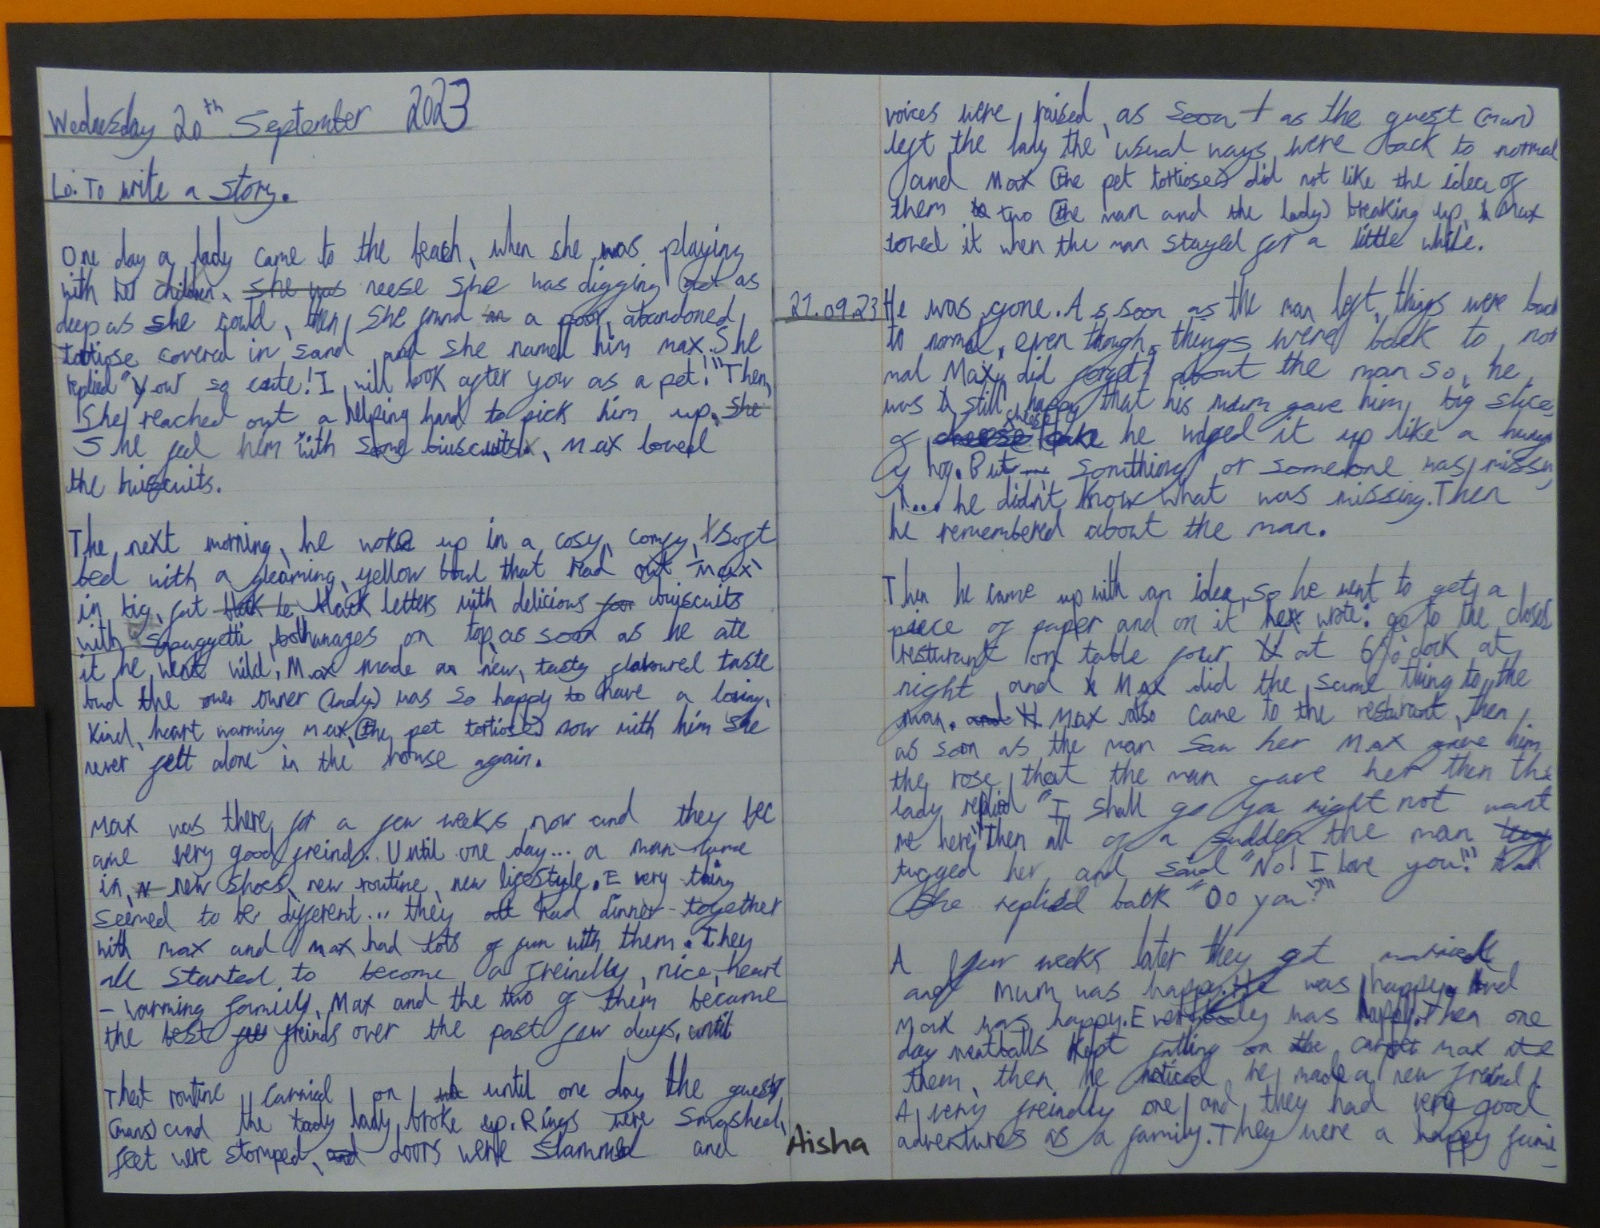 Wednesday 20th September 2023
Lo: To write a story.
One day a lady came to the beach, when she was playing
with her children, she was neese she was digging as
deep as she could, then, she found a poor, abandoned,
tortiose covered in sand and she named him max. She
replied "your so cute! I will look after you as a pet!" Then,
She reached out a helping hand to pick him up. She
She fed him with some biuscuits, Max loved
the buiscuits.
The next morning, he woke up in a cosy, comfy, soft
bed with a gleaming, yellow bowl that read out "max"
in big, fat black letters with delicious buiscuits
with spaggetti bolhunages on top, as soon as he ate
it he went wild, Max made a new, tasty flavoured taste
bud the owner (lady) was so happy to have a loving,
kind, heart warming max, (the pet tortiose) now with him she
never felt alone in the house again.
Max was there for a few weeks now and they bec
ame very good freinds. Until one day... a man came
in, new shoes, new routine, new lifestyle. Every thing
seemed to be different... they had dinner together
with max and max had lots of fun with them. They
all started to become a freindly, nice, heart
- warming family, Max and the two of them became
the best freinds over the past few days, until
That routine carried on until one day the guest,
(man) and the lady broke up. Rings were smashed,
feet were stomped, and doors were slammed and
Aisha
voices were raised, as soon as the guest (man)
left the lady the usual ways were back to normal
and Max (the pet tortiose) did not like the idea of
them two (the man and the lady) breaking up, Max
loved it when the man stayed for a little while.
21.09.23
He was gone. As soon as the man left, things were back
to normal, even though, things were back to nor
mal Max, did forget about the man so, he
was still happy that his mum gave him, big slice,
of cheese he woped it up like a hungr
y hog. But somthing or someone was missin
g... he didn't know what was missing. Then
he remembered about the man.
Then he came up with an idea, so he went to get a
piece of paper and on it he wrote: go to the closes
resturant on table four at 6 o'clock at
night and Max did the same thing to the
man. Max also came to the resturant, then,
as soon as the man saw her Max gave him
the rose, that the man gave her then the
lady replied "I shall go you might not want
me here" then all of a sudden the man
tugged her and said "No! I love you!"
She replied back "Do you?"
A few weeks later they got married
and Mum was happy. He was happy. And
Max was happy. Everybody was happy. Then one
day meatballs kept falling on the carpet max ate
them, then he noticed he made a new freind,
A very freindly one, and they had very good
adventures as a family. They were a happy